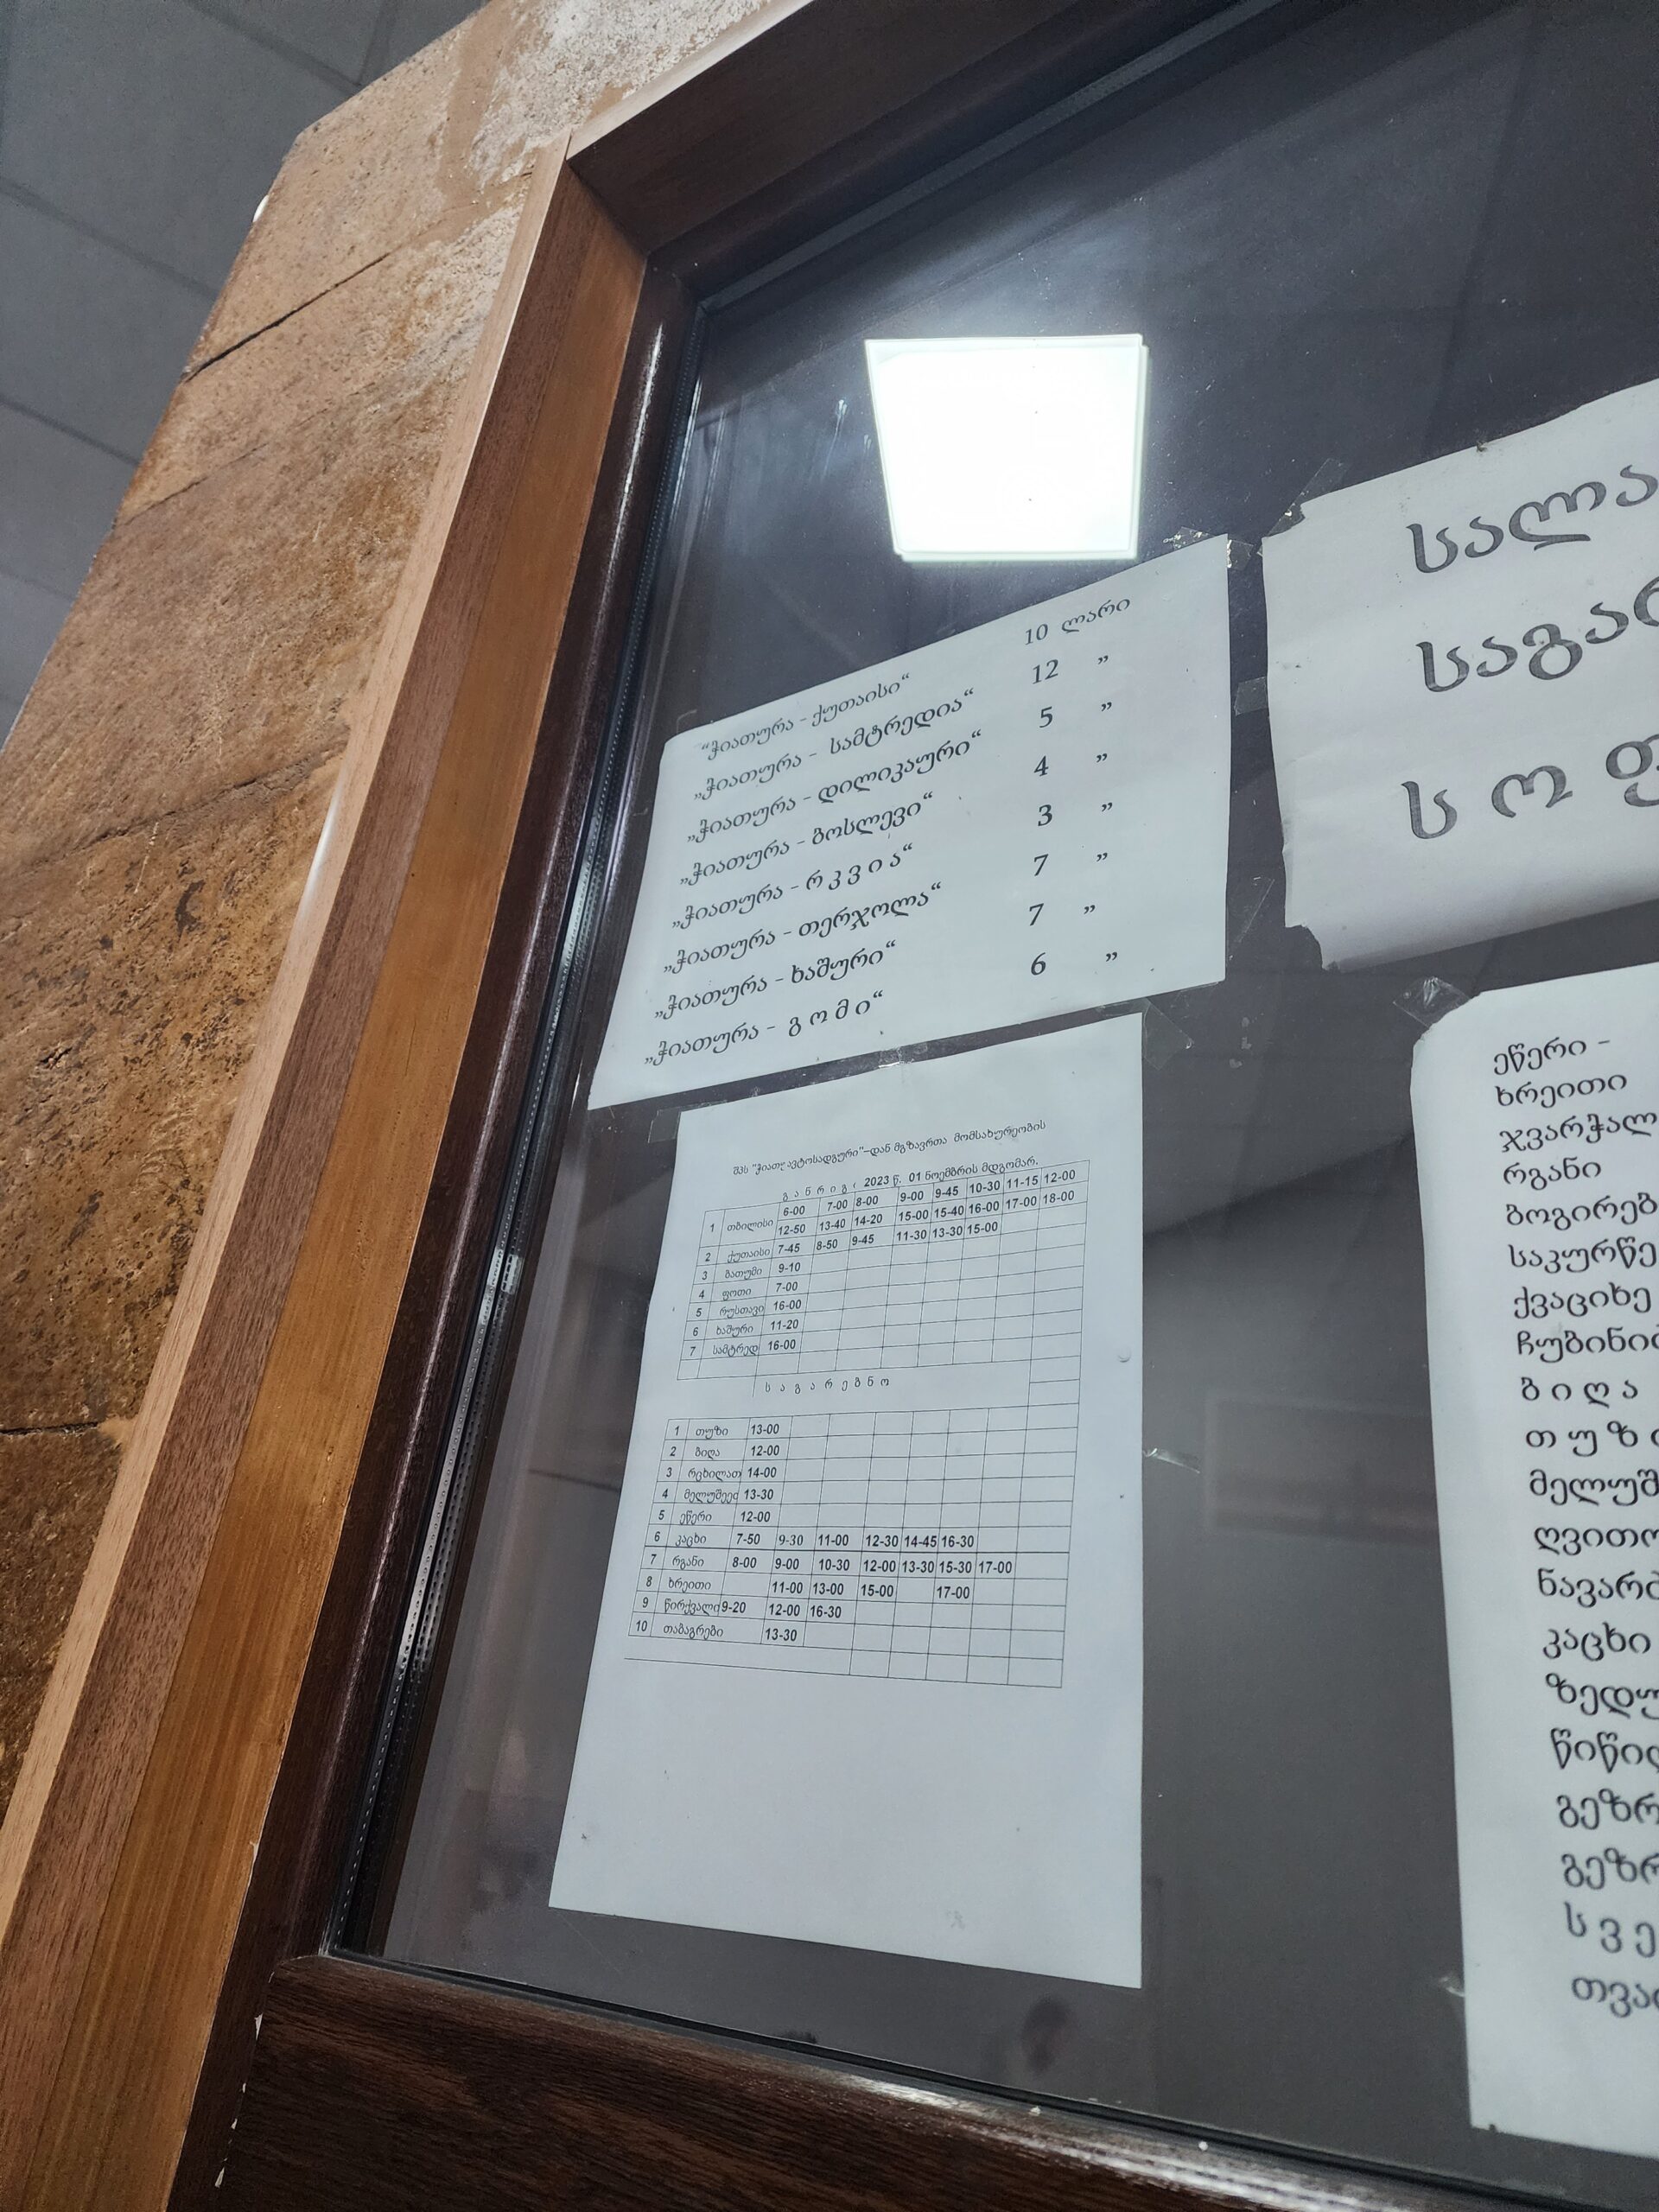 “ჭიათურა - ქუთაისი“ 10 ლარი
„ჭიათურა - სამტრედია“ 12 ”
„ჭიათურა - დილიკაური“ 5 ”
„ჭიათურა - გოსლევი“ 4 ”
„ჭიათურა - რ კ ვ ი ა“ 3 ”
„ჭიათურა - თერჯოლა“ 7 ”
„ჭიათურა - ხაშური“ 7 ”
„ჭიათურა - გ ო მ ი“ 6 ”
შპს "ჭიათ ავტოსადგური"–დან მგზავრთა მომსახურეობის
გ ა ნ რ ი გ ი 2023 წ. 01 ნოემბრის მდგომარ.
1 თბილისი 6-00 7-00 8-00 9-00 9-45 10-30 11-15 12-00
12-50 13-40 14-20 15-00 15-40 16-00 17-00 18-00
2 ქუთაისი 7-45 8-50 9-45 11-30 13-30 15-00
3 ბათუმი 9-10
4 ფოთი 7-00
5 რუსთავი 16-00
6 ხაშური 11-20
7 სამტრედ 16-00
ს ა გ ა რ ე უ ბ ნ ო
1 თუზი 13-00
2 ბიღა 12-00
3 რცხილათ 14-00
4 მელუშეედ 13-30
5 ეწერი 12-00
6 კაცხი 7-50 9-30 11-00 12-30 14-45 16-30
7 რგანი 8-00 9-00 10-30 12-00 13-30 15-30 17-00
8 ხრეითი 11-00 13-00 15-00 17-00
9 წირქვალი 9-20 12-00 16-30
10 თაბაგრები 13-30
სალა
საგარ
ს ო ფ
ეწერი -
ხრეითი
ჯვარჭალ
რგანი
ბოგირებ
საკურწე
ქვაციხე
ჩუბინი
ბ ი ღ ა
თ უ ზ ი
მელუშ
ღვითო
ნავარ
კაცხი
ზედუ
წიწი
გეზრ
გეზრ
ს ვ ე
თვა